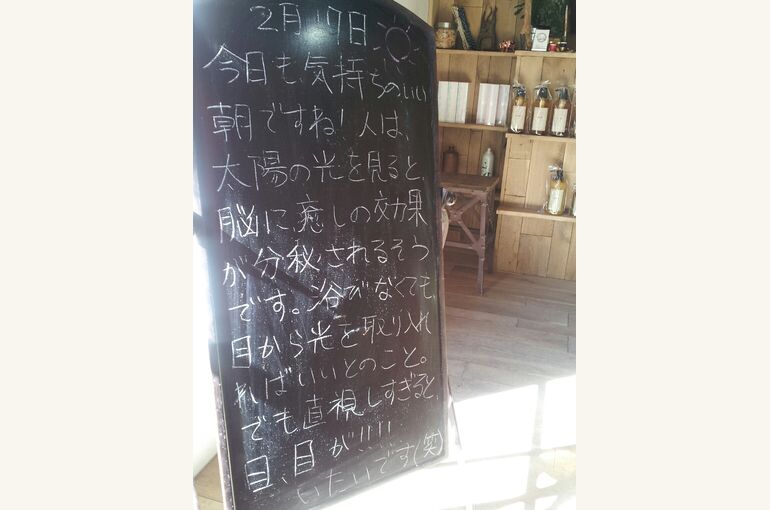 2月17日
今日も気持ちのいい
朝ですね!人は、
太陽の光を見ると、
脳に、癒しの効果
が分秘されるそう
です。浴びなくても、
目から光を取り入れ
ればいいとのこと。
でも直視しすぎると、
目、目が!!!!
いたいです(笑)